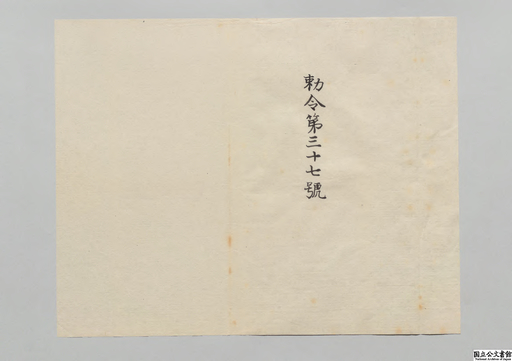 勅令第三十七號
国立公文書館
National Archives of Japan